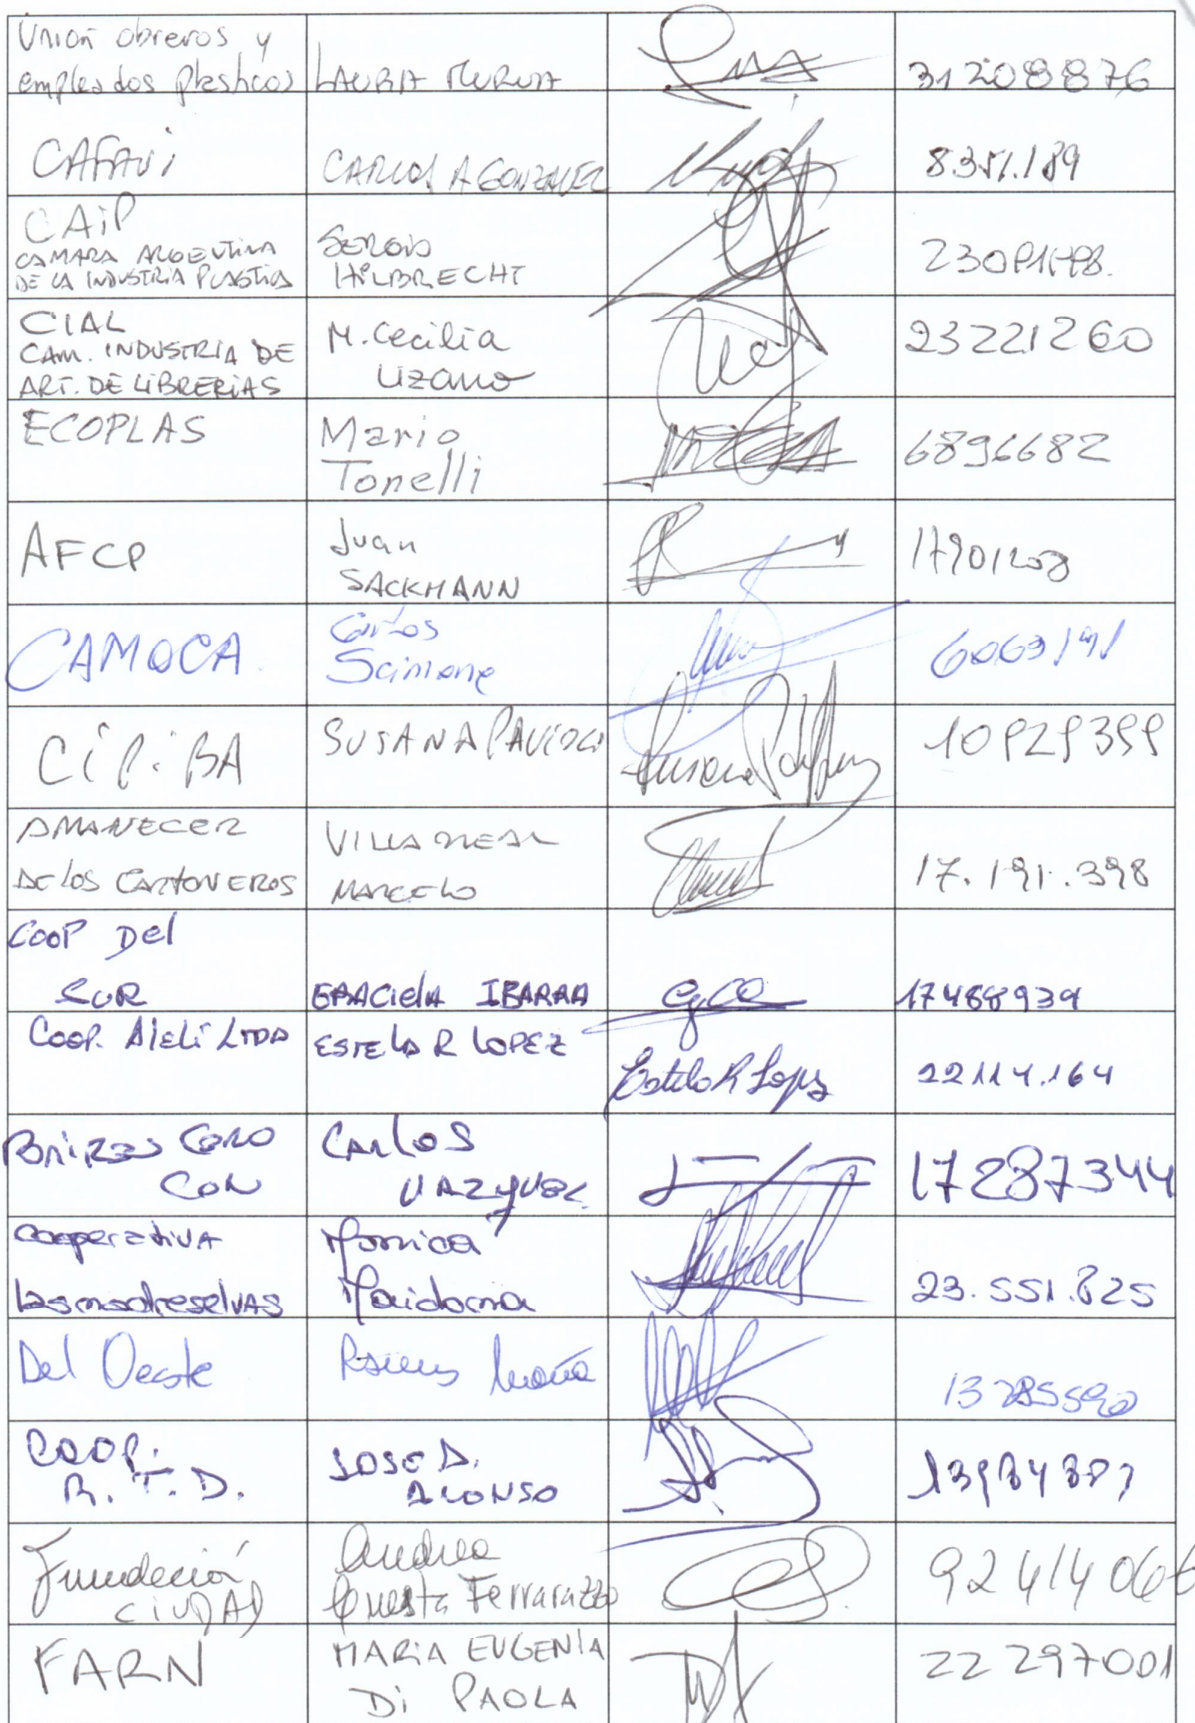 Unión obreros y
empleados plasticos LAURA MURUA 31208876
CAFAVI CARLOS A GONZALEZ 8.351.189
CAIP
CAMARA ARGENTINA
DE LA INDUSTRIA PLASTICA
SERGIO
HILBRECHT
CIAL
CAM. INDUSTRIA DE
ART. DE LIBRERIAS
M. Cecilia
Lizano
23221260
ECOPLAS
Mario
Tonelli
6896682
AFCP
Juan
SACKMANN
CAMOCA
Carlos
Scimone
6063191
CIPIBA SUSANA
AMANECER
DE LOS CARTONEROS
VILLARREAL
MARCELO
17.191.398
COOP Del
SUR
GRACIELA IBARRA
Coop. Alelí LTDA ESTELA R LOPEZ
Estela R Lopez
22114.164
CARLOS
VAZQUEZ
17287344
Cooperativa
las madreselvas
Monica
Maidana
23.551.825
Del Oeste
COOP.
R.T.D.
JOSE D.
ALONSO
Fundación
CIUDAD
Andrea
Cuesta Ferrarazzo
92414066
FARN
MARIA EUGENIA
Di PAOLA
22297001